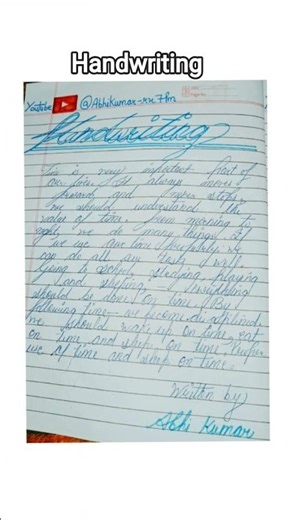 Handwriting
Youtube @Abhikumar-xx7hn
Handwriting
Time is very important Part of
our lives. It always moves
forward and never stops.
we should understand the
value of time. From morning to
night, we do many things. If
we use our time Properly, we
can do all our task well
Going to school, studying, playing
and sleeping, - Everything
should be done on time. By
following time - we become disciplined.
we should wake up on time, eat
on time, and sleep on time. Proper
use of time and sleep on time.
Written by
Abhi Kumar